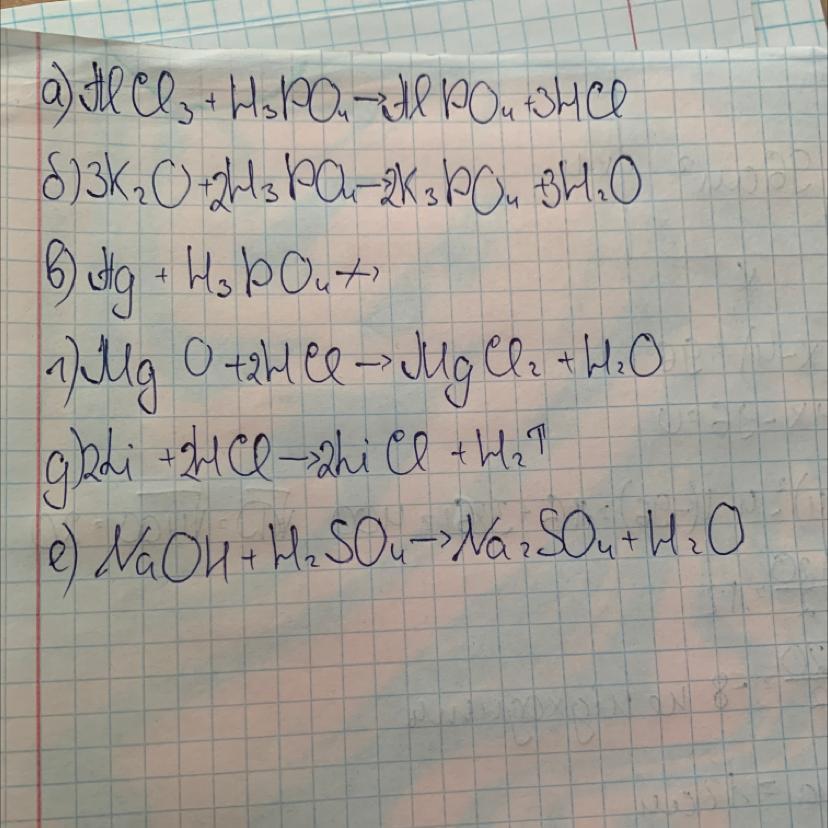 а) AlCl₃ + H₃PO₄ → AlPO₄ + 3HCl
б) 3K₂O + 2H₃PO₄ → 2K₃PO₄ + 3H₂O
в) Ag + H₃PO₄ ↛
г) MgO + 2HCl → MgCl₂ + H₂O
д) 2Li + 2HCl → 2LiCl + H₂↑
е) NaOH + H₂SO₄ → Na₂SO₄ + H₂O